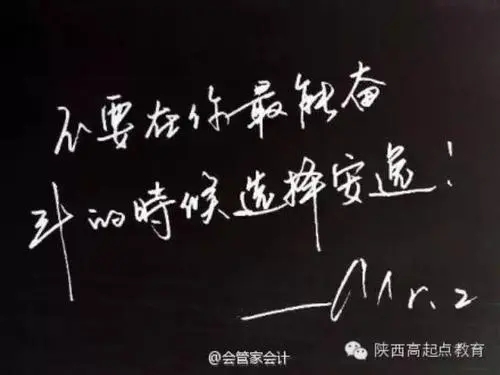 不要在你最能奋
斗的時候选择安逸！
——Mr.Z
@会管家会计
陕西高起点教育